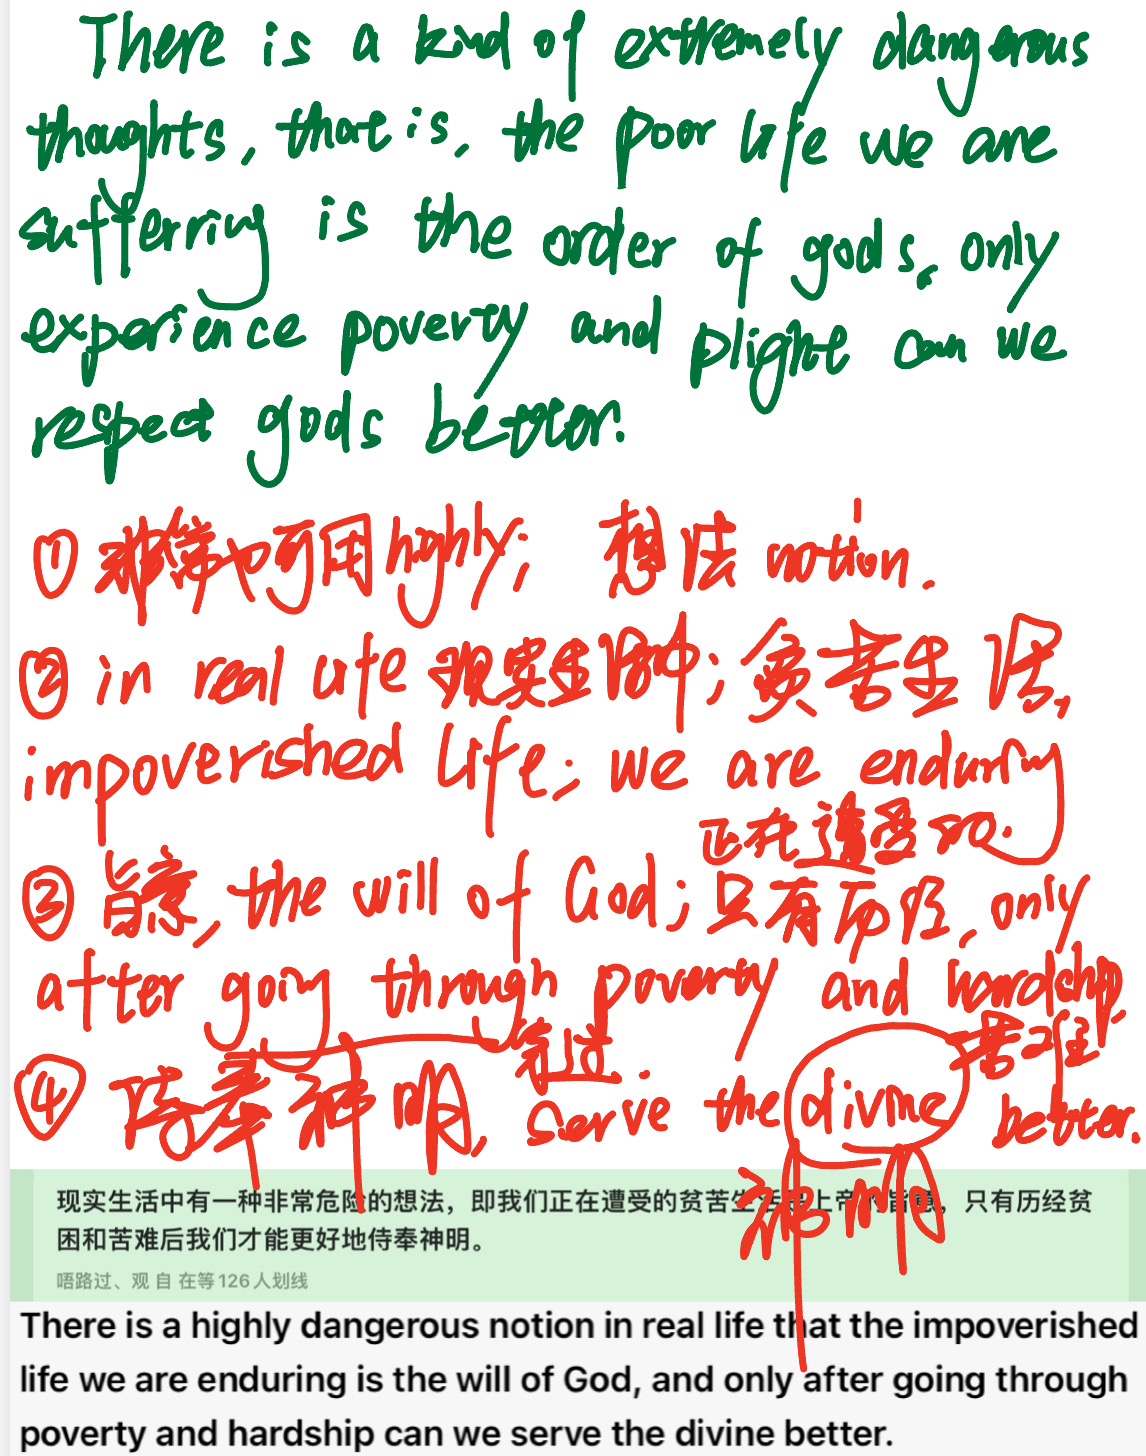 There is a kind of extremely dangerous
thoughts, that is, the poor life we are
sufferring is the order of gods, only
experience poverty and plight can we
respect gods better.
① 非常也可用highly; 想法 notion.
② in real life 现实生活中; 贫苦生活,
impoverished life; we are enduring
正在遭受的.
③ 旨意, the will of God; 只有历经, only
after going through poverty and hardship,
经过 苦难
④ 侍奉神明, serve the divine better.
神明
现实生活中有一种非常危险的想法，即我们正在遭受的贫苦生活是上帝的旨意，只有历经贫
困和苦难后我们才能更好地侍奉神明。
唔路过、观 自 在等126人划线
There is a highly dangerous notion in real life that the impoverished
life we are enduring is the will of God, and only after going through
poverty and hardship can we serve the divine better.